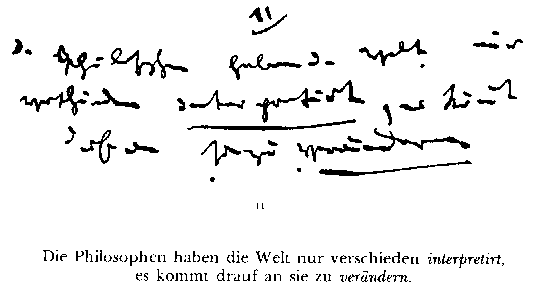 11
D. Philosophen haben d. Welt nur
verschieden interpretirt, es kömmt
drauf an sie zu verändern
11
Die Philosophen haben die Welt nur verschieden interpretirt,
es kommt drauf an sie zu verändern.